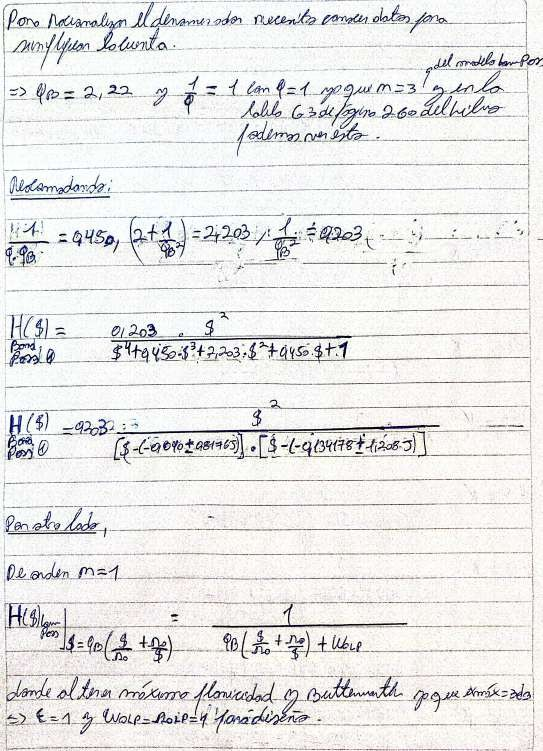 Para Racionalizar el denominador necesito conocer datos para
simplificar la cuenta.
del modelo Low Pass
=> qB = 2,22 y 1/q = 1 con q = 1 ya que m = 3 y en la
tabla 6.3 de página 260 del libro
podemos ver esto.
Reacomodando:
1/(q·qB) = 0,450, (2 + 1/qB²) = 2,203 / 1/qB² = 0,203
H($) Band Pass ① = 0,203 · $² / ($⁴ + 0,450·$³ + 2,203·$² + 0,450·$ + 1)
H($) Band Pass ① = 0,203 · $² / ([$-(-0,090 ± 0,8176J)] · [$-(-0,134178 ± 1,208·J)])
Por otro lado,
De orden m = 1
H($) Low Pass | $ = qB($/Ω0 + Ω0/$) = 1 / (qB($/Ω0 + Ω0/$) + W0LP)
donde al tener máxima planicidad y Butterworth ya que αmáx = 3dB
=> ε = 1 y W0LP = Ω0LP = 1 para diseño.